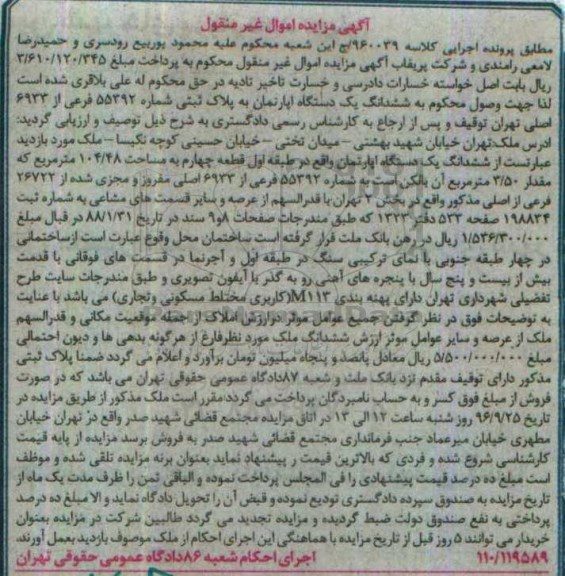 آگهی مزایده اموال غیر منقول
مطابق پرونده اجرایی کلاسه ۹۶۰۰۳۹/ج این شعبه محکوم علیه محمود پوربیع رودسری و حمیدرضا
لامعی رامندی و شرکت پریفاب آگهی مزایده اموال غیر منقول محکوم به پرداخت مبلغ ۳/۶۱۰/۱۲۰/۳۴۵
ریال بابت اصل خواسته خسارات دادرسی و خسارت تاخیر تادیه در حق محکوم له علی بلاقری شده است
لذا جهت وصول محکوم به ششدانگ یک دستگاه اپارتمان به پلاک ثبتی شماره ۵۵۳۹۲ فرعی از ۶۹۳۳
اصلی تهران توقیف و پس از ارجاع به کارشناس رسمی دادگستری به شرح ذیل توصیف و ارزیابی گردید:
ادرس ملک:تهران خیابان شهید بهشتی – میدان تختی – خیابان حسینی کوچه نکیسا – ملک مورد بازدید
عبارتست از ششدانگ یک دستگاه اپارتمان واقع در طبقه اول قطعه چهارم به مساحت ۱۰۴/۴۸ مترمربع که
مقدار ۳/۵۰ مترمربع آن بالکن است شماره ۵۵۳۹۲ فرعی از ۶۹۳۳ اصلی مفروز و مجزی شده از ۲۶۷۲۲
فرعی از اصلی مذکور واقع در بخش ۳ تهران با قدرالسهم از عرصه و سایر قسمت های مشاعی به شماره ثبت
۱۹۸۸۳۴ صفحه ۵۲۳ دفتر ۱۳۲۳ که طبق مندرجات صفحات ۸و۹ سند در تاریخ ۸۸/۱/۳۱ در قبال مبلغ
۱/۵۳۶/۳۰۰/۰۰۰ ریال در رهن بانک ملت قرار گرفته است ساختمان محل وقوع عبارت است ازساختمانی
در چهار طبقه جنوبی با نمای ترکیبی سنگ در طبقه اول و آجرنما در قسمت های فوقانی با قدمت
بیش از بیست و پنج سال با پنجره های آهنی رو به گذر با آیفون تصویری و طبق مندرجات سایت طرح
تفضیلی شهرداری تهران دارای پهنه بندی M۱۱۳(کاربری مختلط مسکونی وتجاری) می باشد با عنایت
به توضیحات فوق در نظر گرفتن جمیع عوامل موثر درارزش املاک از جمله موقعیت مکانی و قدرالسهم
ملک از عرصه و سایر عوامل موثر ارزش ششدانگ ملک مورد نظرفارغ از هرگونه بدهی ها و دیون احتمالی
مبلغ ۵/۵۰۰/۰۰۰/۰۰۰ ریال معادل پانصد و پنجاه میلیون تومان برآورد و اعلام می گردد ضمنا پلاک ثبتی
مذکور دارای توقیف مقدم نزد بانک ملت و شعبه ۸۷دادگاه عمومی حقوقی تهران می باشد که در صورت
فروش از مبلغ فوق کسر و به حساب نامبردگان پرداخت می گردد مقرر است ملک مذکور از طریق مزایده در
تاریخ ۹۶/۹/۲۵ روز شنبه ساعت ۱۲ الی ۱۳ در اتاق مزایده مجتمع قضائی شهید صدر واقع در تهران خیابان
مطهری خیابان میرعماد جنب فرمانداری مجتمع قضائی شهید صدر به فروش برسد مزایده از پایه قیمت
کارشناسی شروع شده و فردی که بالاترین قیمت ر پیشنهاد نماید بعنوان برنه مزایده تلقی شده و موظف
است مبلغ ده درصد قیمت پیشنهادی را فی المجلس پرداخت نموده و الباقی ثمن را ظرف مدت یک ماه از
تاریخ مزایده به صندوق سپرده دادگستری تودیع نموده و قبض آن را تحویل دادگاه نماید و الا مبلغ ده درصد
پرداختی به نفع صندوق دولت ضبط گردیده و مزایده تجدید می گردد طالبین شرکت در مزایده بعنوان
خریدار می توانند ۵ روز قبل از تاریخ مزایده با هماهنگی این اجرای احکام از ملک موصوف بازدید بعمل آورند.
۱۱۰/۱۱۹۵۸۹ اجرای احکام شعبه ۸۶دادگاه عمومی حقوقی تهران